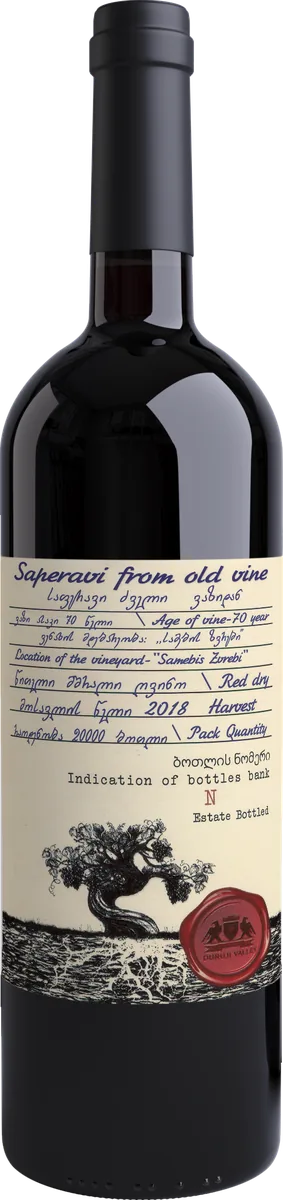 Saperavi from old vine
საფერავი ძველი ვაზიდან
ვაზი ასაკი 70 წელი \ Age of vine-70 year
ვენახის მდებარეობა: ,,სამების ზვრები"
Location of the vineyard-"Samebis Zvrebi"
წითელი მშრალი ღვინო \ Red dry
მოსავლის წელი 2018 Harvest
რაოდენობა 20000 ბოთლი \ Pack Quantity
ბოთლის ნომერი
Indication of bottles bank
N
Estate Bottled
DURUJI VALLEY